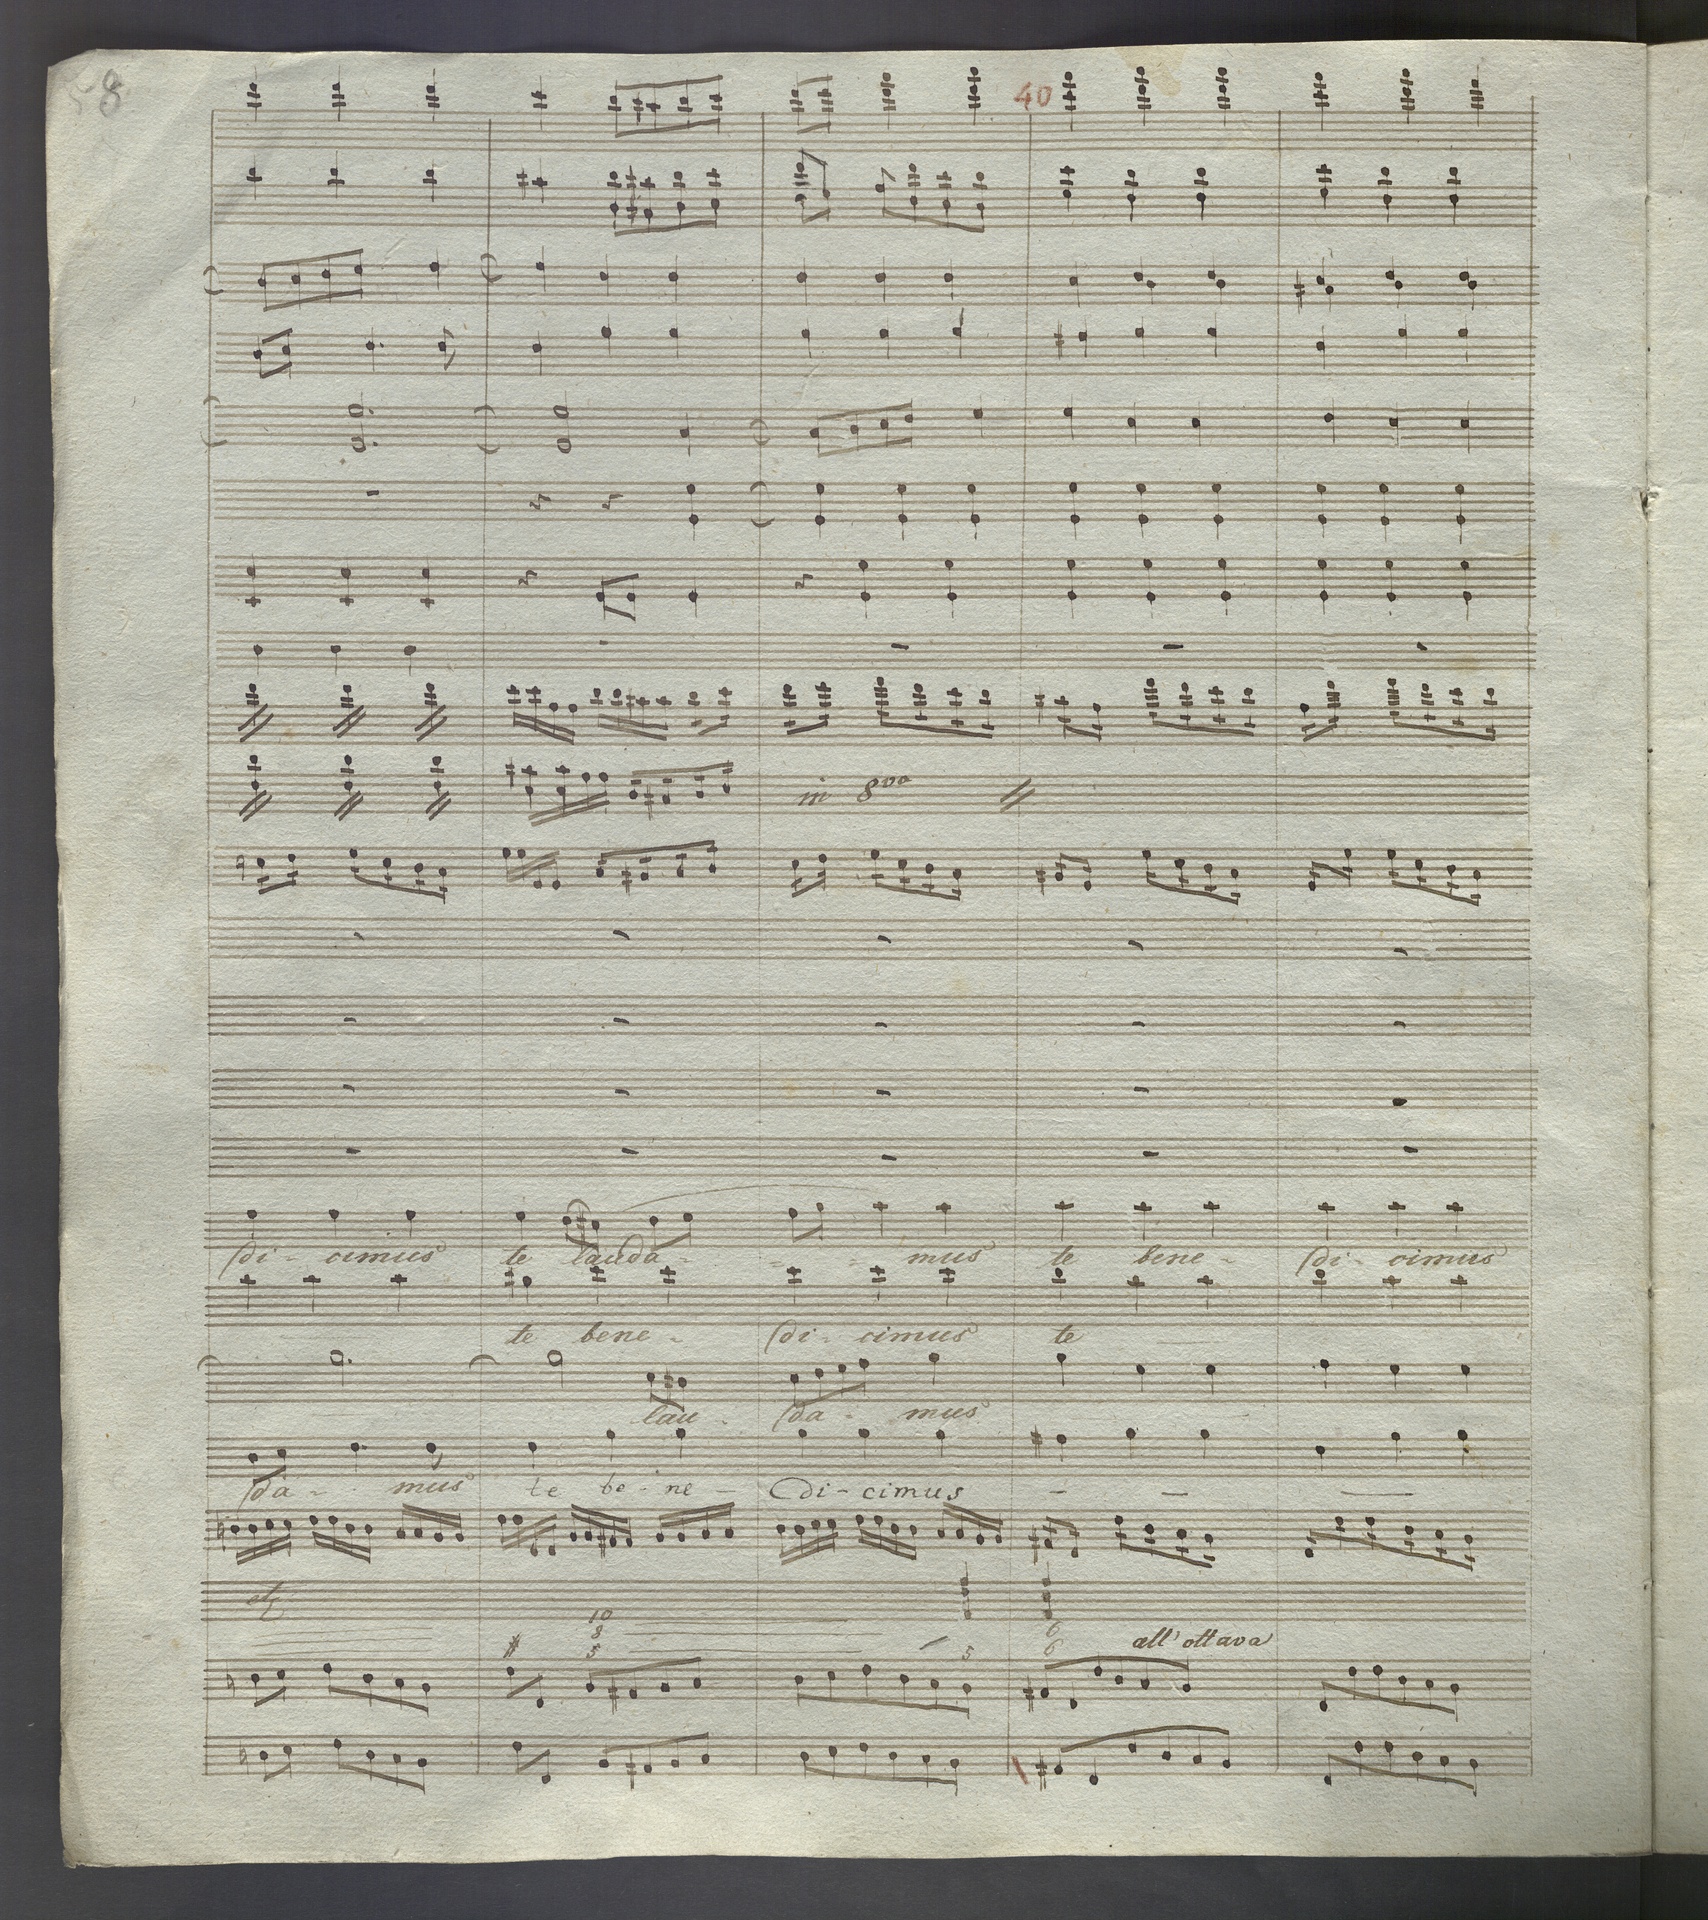 58
40
in 8va
di - cimus te lauda - - mus te bene - di - cimus
te bene - di - cimus te
lau - da - mus
da - - mus te be - ne - di - cimus
10
8
# 5 5
6
6 all' ottava